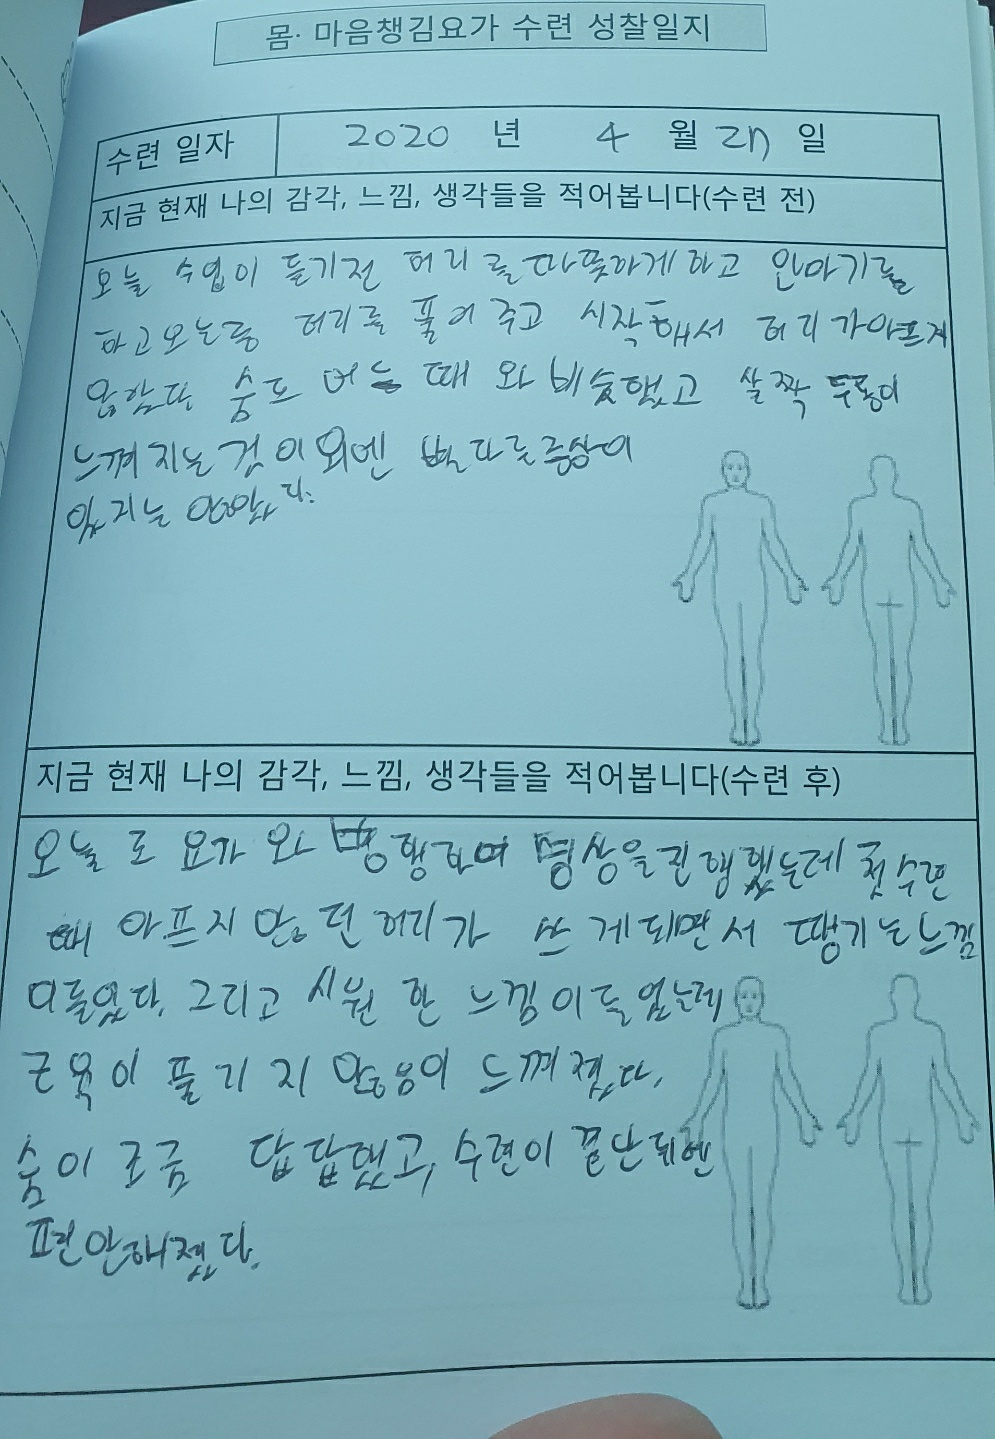 몸· 마음챙김요가 수련 성찰일지
수련 일자 2020 년 4 월 27 일
지금 현재 나의 감각, 느낌, 생각들을 적어봅니다(수련 전)
오늘 수업이 듣기전 허리를 따뜻하게하고 안마기를
하고오는등 허리를 풀어 주고 시작해서 허리가아프지
않았다 숨도 여느 때 와 비슷했고 살짝 두통이
느껴지는 것 이외엔 별다른증상이
있지는 않았다.
지금 현재 나의 감각, 느낌, 생각들을 적어봅니다(수련 후)
오늘 도 요가 와 병행하여 명상을진행했는데 첫수련
때 아프지 않던 허리가 쓰게되면서 땡기는느낌
이들었다. 그리고 시원 한 느낌이들었는데
근육이 풀기지 않음이 느껴졌다.
숨이 조금 답답했고, 수련이 끝난뒤엔
편안해졌다.